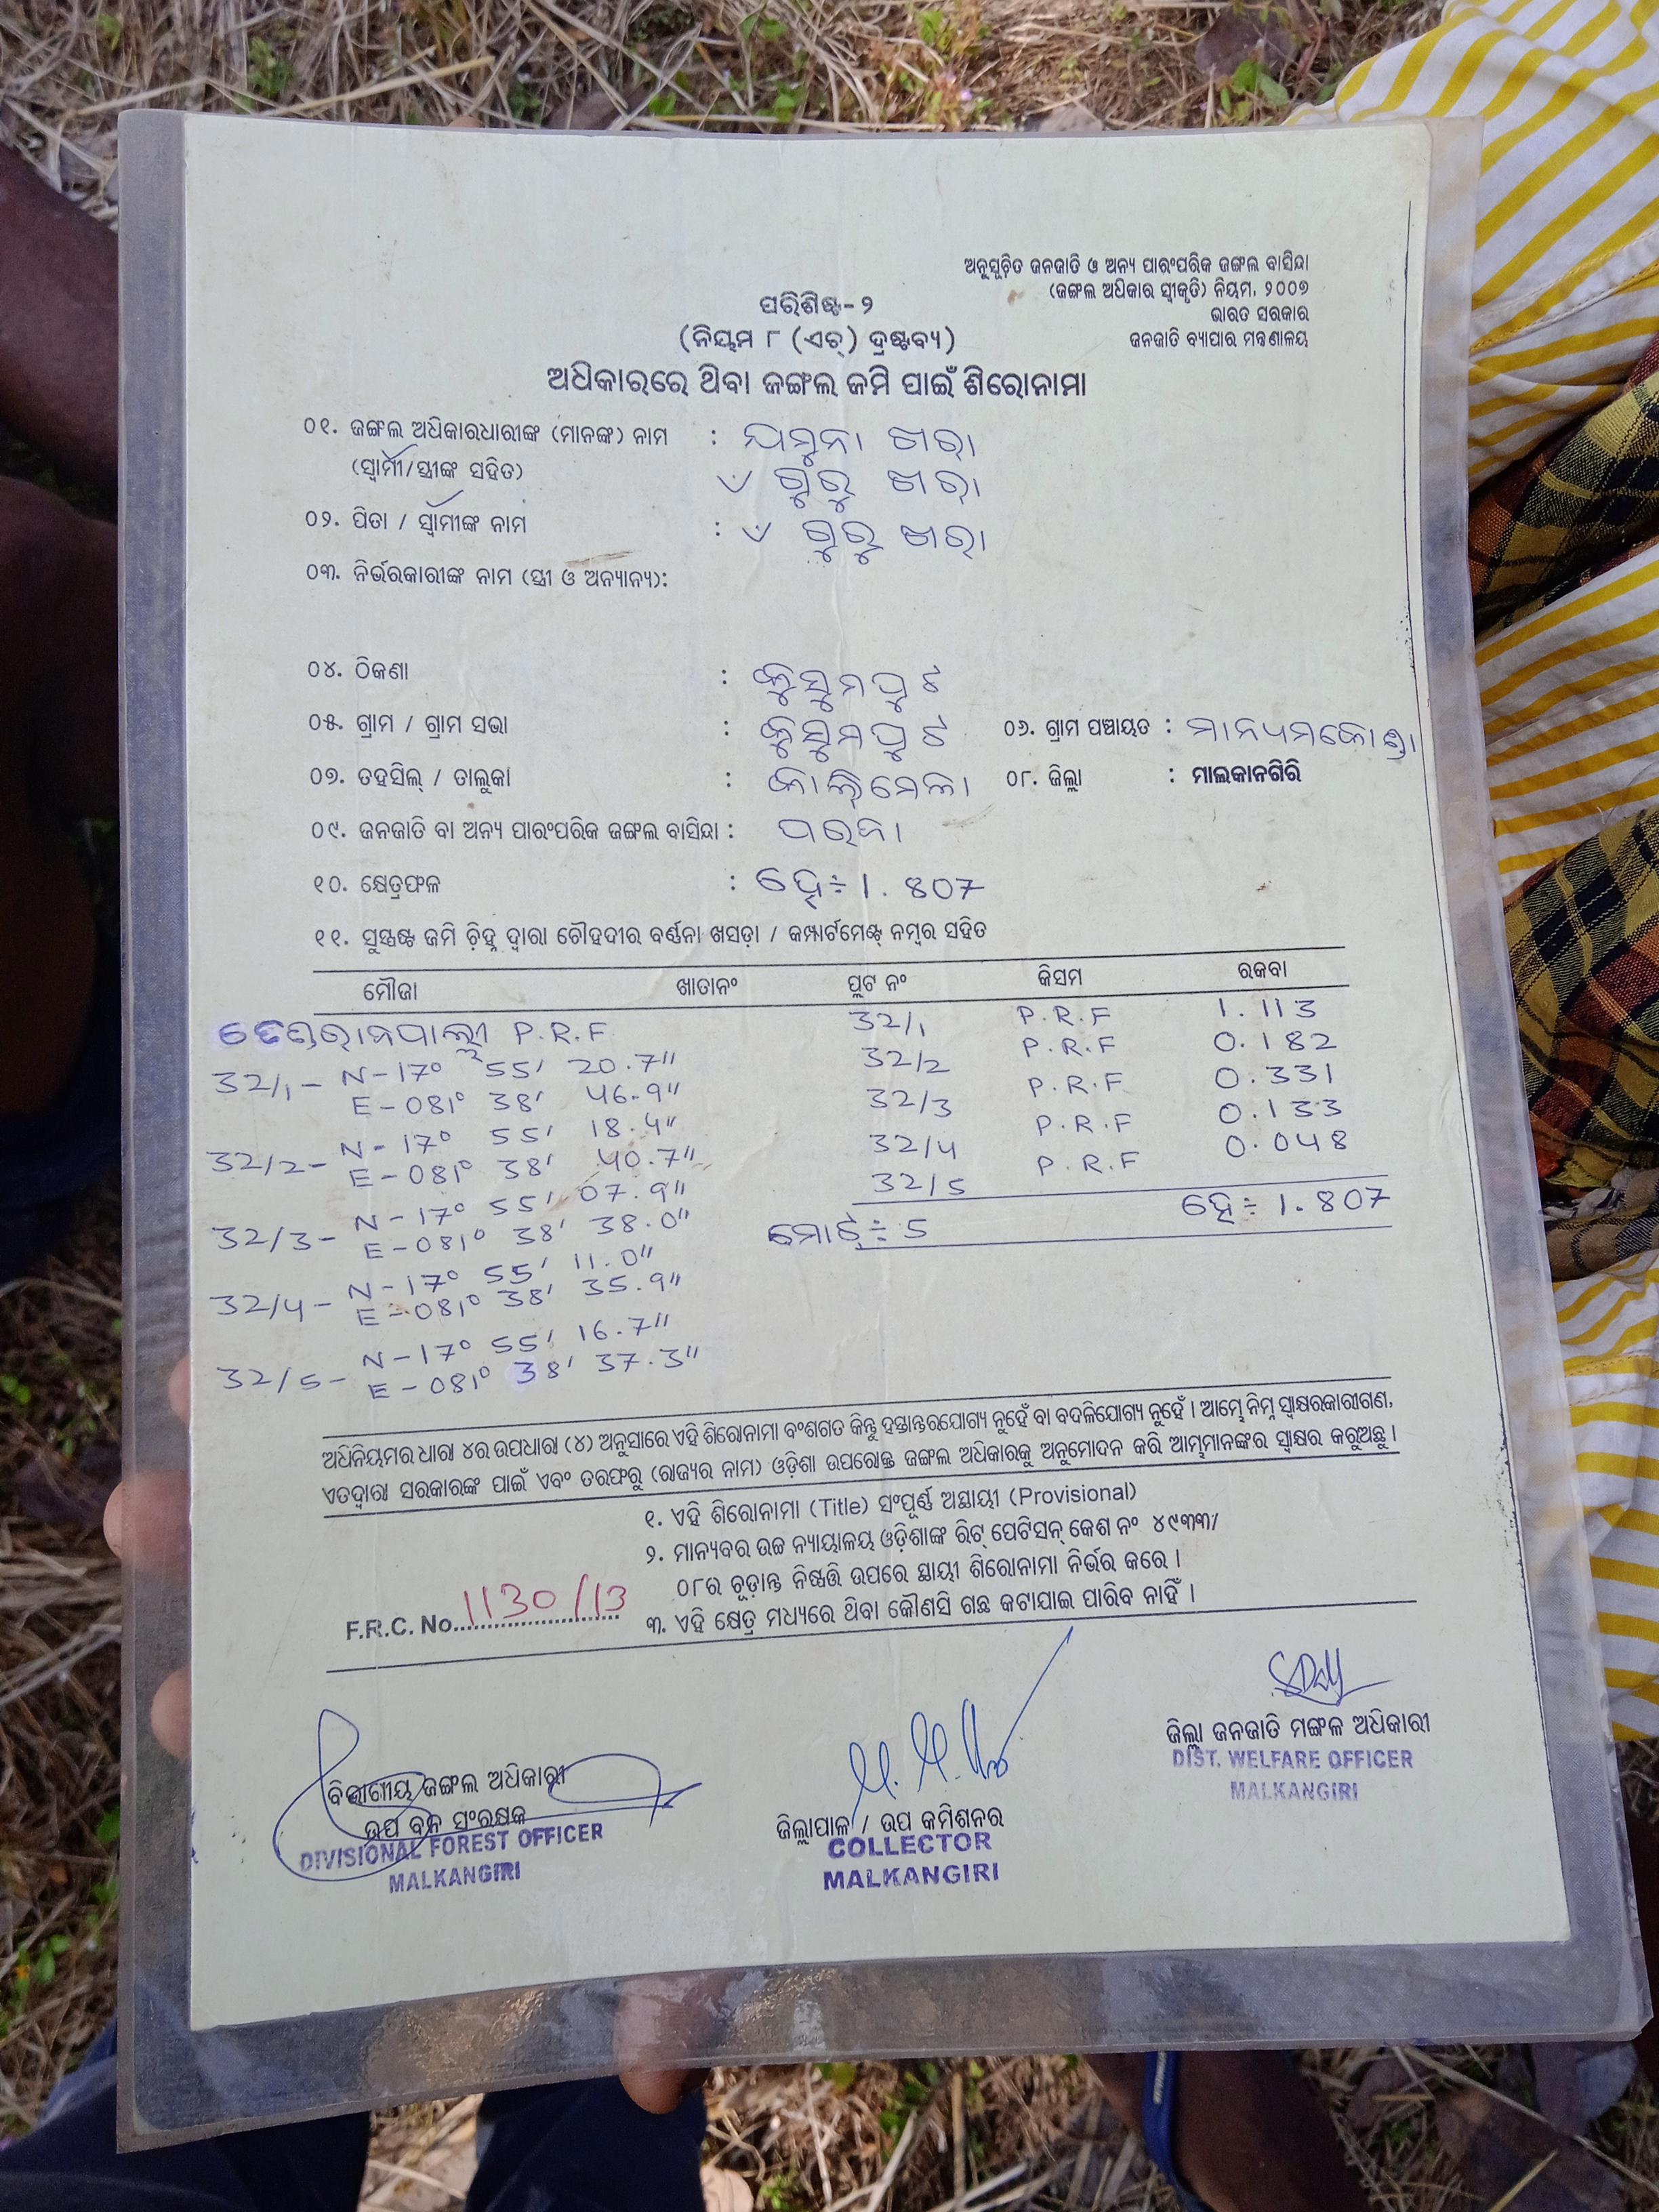 ଅନୁସୂଚିତ ଜନଜାତି ଓ ଅନ୍ୟ ପାରଂପରିକ ଜଙ୍ଗଲ ବାସିନ୍ଦା
(ଜଙ୍ଗଲ ଅଧିକାର ସ୍ୱୀକୃତି) ନିୟମ, ୨୦୦୭
ଭାରତ ସରକାର
ଜନଜାତି ବ୍ୟାପାର ମନ୍ତ୍ରଣାଳୟ
ପରିଶିଷ୍ଟ-୨
(ନିୟମ ୮ (ଏଚ୍) ଦ୍ରଷ୍ଟବ୍ୟ)
ଅଧିକାରରେ ଥିବା ଜଙ୍ଗଲ ଜମି ପାଇଁ ଶିରୋନାମା
୦୧. ଜଙ୍ଗଲ ଅଧିକାରଧାରୀଙ୍କ (ମାନଙ୍କ) ନାମ : ଯମୁନା ଖରା
(ସ୍ୱାମୀ/ସ୍ତ୍ରୀଙ୍କ ସହିତ) ଗୁରୁ ଖରା
୦୨. ପିତା / ସ୍ୱାମୀଙ୍କ ନାମ : ଗୁରୁ ଖରା
୦୩. ନିର୍ଭରକାରୀଙ୍କ ନାମ (ସ୍ତ୍ରୀ ଓ ଅନ୍ୟାନ୍ୟ):
୦୪. ଠିକଣା : କୁସୁମପୁଟ
୦୫. ଗ୍ରାମ / ଗ୍ରାମ ସଭା : କୁସୁମପୁଟ ୦୬. ଗ୍ରାମ ପଞ୍ଚାୟତ : ମାନ୍ୟମକୋଣ୍ଡା
୦୭. ତହସିଲ୍ / ତାଲୁକା : କାଲିମେଳା ୦୮. ଜିଲ୍ଲା : ମାଲକାନଗିରି
୦୯. ଜନଜାତି ବା ଅନ୍ୟ ପାରଂପରିକ ଜଙ୍ଗଲ ବାସିନ୍ଦା : ପରଜା
୧୦. କ୍ଷେତ୍ରଫଳ : ହେ÷ 1.807
୧୧. ସୁସ୍ପଷ୍ଟ ଜମି ଚିହ୍ନ ଦ୍ୱାରା ଚୌହଦୀର ବର୍ଣ୍ଣନା ଖସଡ଼ା / କମ୍ପାର୍ଟମେଣ୍ଟ ନମ୍ବର ସହିତ
ମୌଜା ଖାତାନଂ ପ୍ଲଟ ନଂ କିସମ ରକବା
P.R.F 32/1 P.R.F 1.113
32/1- N-17° 55' 20.7" 32/2 P.R.F 0.182
E-081° 38' 46.9" 32/3 P.R.F 0.331
32/2- N-17° 55' 18.4" 32/4 P.R.F 0.133
E-081° 38' 40.7" 32/5 P.R.F 0.048
32/3- N-17° 55' 07.9" ମୋଟ÷ 5 ହେ÷ 1.807
E-081° 38' 38.0"
32/4- N-17° 55' 11.0"
E-081° 38' 35.9"
32/5- N-17° 55' 16.7"
E-081° 38' 37.3"
ଅଧିନିୟମର ଧାରା ୪ର ଉପଧାରା (୪) ଅନୁସାରେ ଏହି ଶିରୋନାମା ବଂଶଗତ କିନ୍ତୁ ହସ୍ତାନ୍ତରଯୋଗ୍ୟ ନୁହେଁ ବା ବଦଳିଯୋଗ୍ୟ ନୁହେଁ । ଆମ୍ଭେ ନିମ୍ନ ସ୍ୱାକ୍ଷରକାରୀଗଣ,
ଏତଦ୍ୱାରା ସରକାରଙ୍କ ପାଇଁ ଏବଂ ତରଫରୁ (ରାଜ୍ୟର ନାମ) ଓଡ଼ିଶା ଉପରୋକ୍ତ ଜଙ୍ଗଲ ଅଧିକାରକୁ ଅନୁମୋଦନ କରି ଆମ୍ଭମାନଙ୍କର ସ୍ୱାକ୍ଷର କରୁଅଛୁ ।
୧. ଏହି ଶିରୋନାମା (Title) ସଂପୂର୍ଣ୍ଣ ଅସ୍ଥାୟୀ (Provisional)
୨. ମାନ୍ୟବର ଉଚ୍ଚ ନ୍ୟାୟାଳୟ ଓଡ଼ିଶାଙ୍କ ରିଟ୍ ପେଟିସନ୍ କେଶ ନଂ ୪୯୩୩/
୦୮ର ଚୂଡ଼ାନ୍ତ ନିଷ୍ପତ୍ତି ଉପରେ ସ୍ଥାୟୀ ଶିରୋନାମା ନିର୍ଭର କରେ ।
୩. ଏହି କ୍ଷେତ୍ର ମଧ୍ୟରେ ଥିବା କୌଣସି ଗଛ କଟାଯାଇ ପାରିବ ନାହିଁ ।
F.R.C. No. 1130/13
ବିଭାଗୀୟ ଜଙ୍ଗଲ ଅଧିକାରୀ
ଉପ ବନ ସଂରକ୍ଷକ
DIVISIONAL FOREST OFFICER
MALKANGIRI
ଜିଲ୍ଲାପାଳ / ଉପ କମିଶନର
COLLECTOR
MALKANGIRI
ଜିଲ୍ଲା ଜନଜାତି ମଙ୍ଗଳ ଅଧିକାରୀ
DIST. WELFARE OFFICER
MALKANGIRI